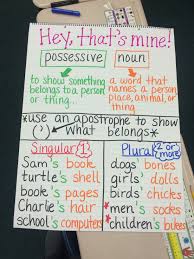 Hey, that's mine!
possessive noun
to show something a word that
belongs to a person names a person
or thing... place, animal, or
thing...
*use an apostrophe to show
(') What belongs*
Singular (1) Plural (2 or more)
Sam's book dogs' bones
turtle's shell girls' dolls
book's pages birds' chicks
Charlie's hair *men's socks
school's computers *children's bikes